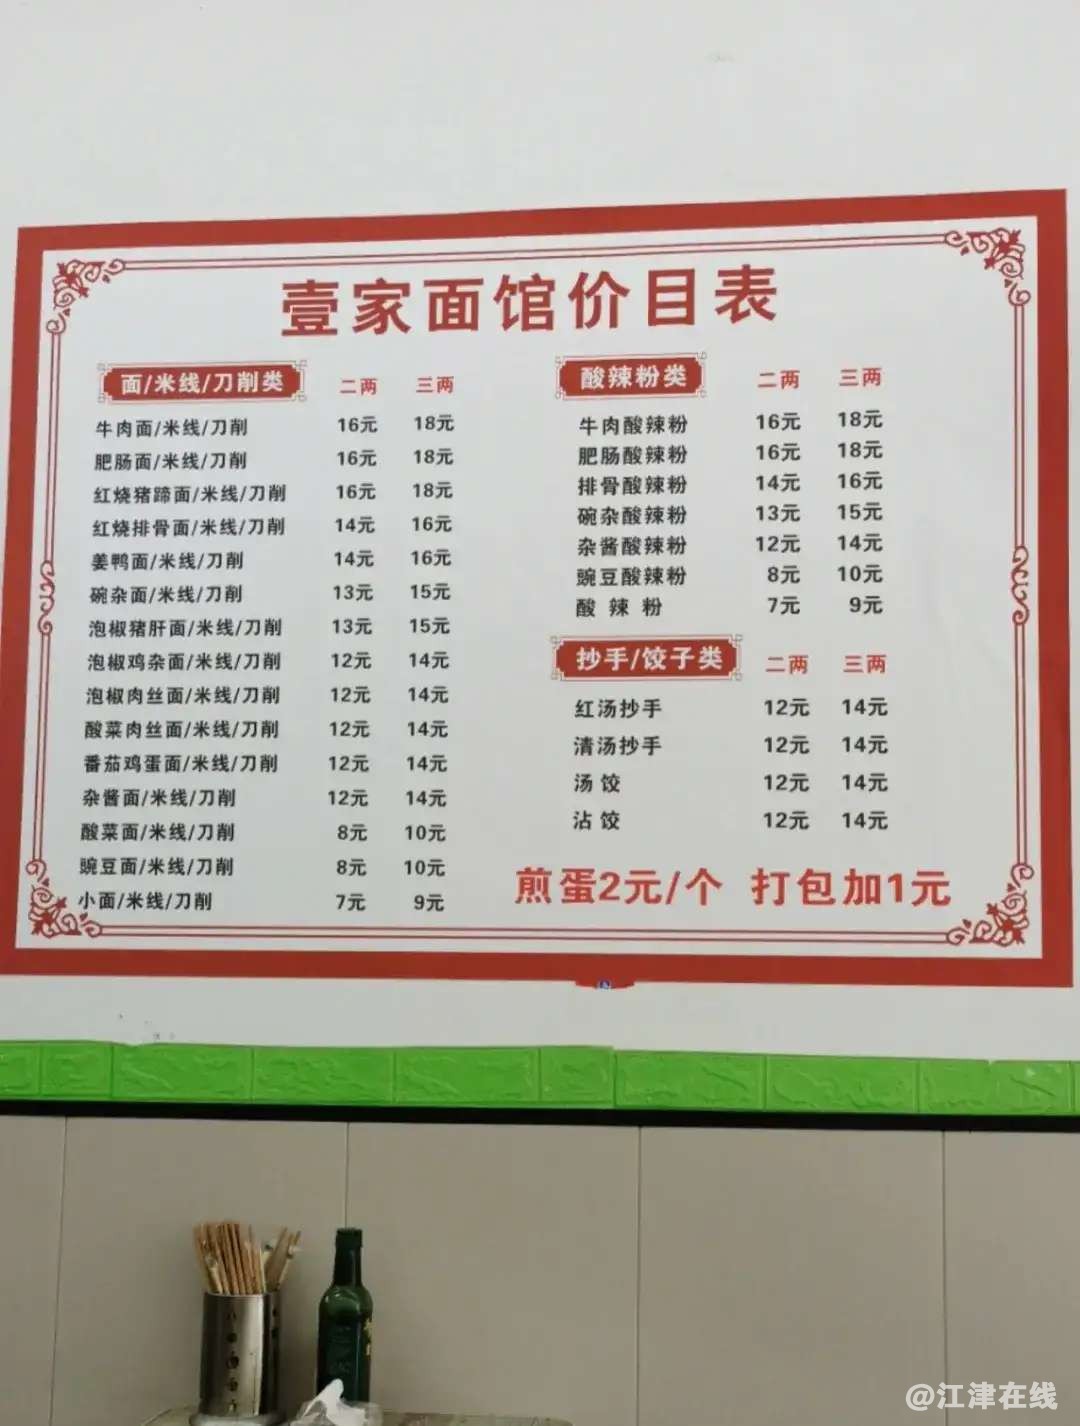 壹家面馆价目表
面/米线/刀削类 二两 三两
牛肉面/米线/刀削 16元 18元
肥肠面/米线/刀削 16元 18元
红烧猪蹄面/米线/刀削 16元 18元
红烧排骨面/米线/刀削 14元 16元
姜鸭面/米线/刀削 14元 16元
碗杂面/米线/刀削 13元 15元
泡椒猪肝面/米线/刀削 13元 15元
泡椒鸡杂面/米线/刀削 12元 14元
泡椒肉丝面/米线/刀削 12元 14元
酸菜肉丝面/米线/刀削 12元 14元
番茄鸡蛋面/米线/刀削 12元 14元
杂酱面/米线/刀削 12元 14元
酸菜面/米线/刀削 8元 10元
豌豆面/米线/刀削 8元 10元
小面/米线/刀削 7元 9元
酸辣粉类 二两 三两
牛肉酸辣粉 16元 18元
肥肠酸辣粉 16元 18元
排骨酸辣粉 14元 16元
碗杂酸辣粉 13元 15元
杂酱酸辣粉 12元 14元
豌豆酸辣粉 8元 10元
酸辣粉 7元 9元
抄手/饺子类 二两 三两
红汤抄手 12元 14元
清汤抄手 12元 14元
汤饺 12元 14元
沾饺 12元 14元
煎蛋2元/个 打包加1元
@江津在线